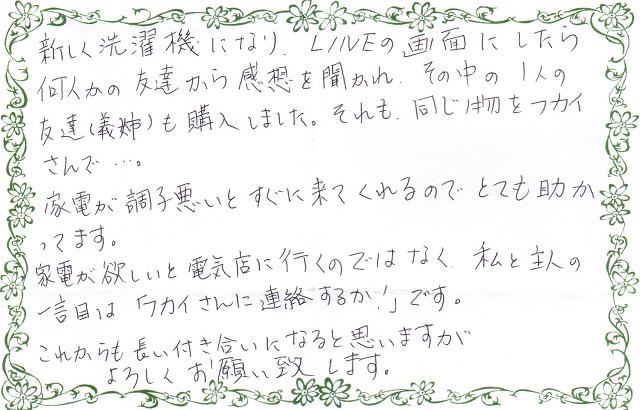 新しく洗濯機になり、LINEの画面にしたら
何人かの友達から感想を聞かれ、その中の1人の
友達(義姉)も購入しました。それも、同じ物をフカイ
さんで…。
家電が調子悪いとすぐに来てくれるのでとても助か
ってます。
家電が欲しいと電気店に行くのではなく、私と主人の
一言目は「フカイさんに連絡するか!」です。
これからも長い付き合いになると思いますが
よろしくお願い致します。